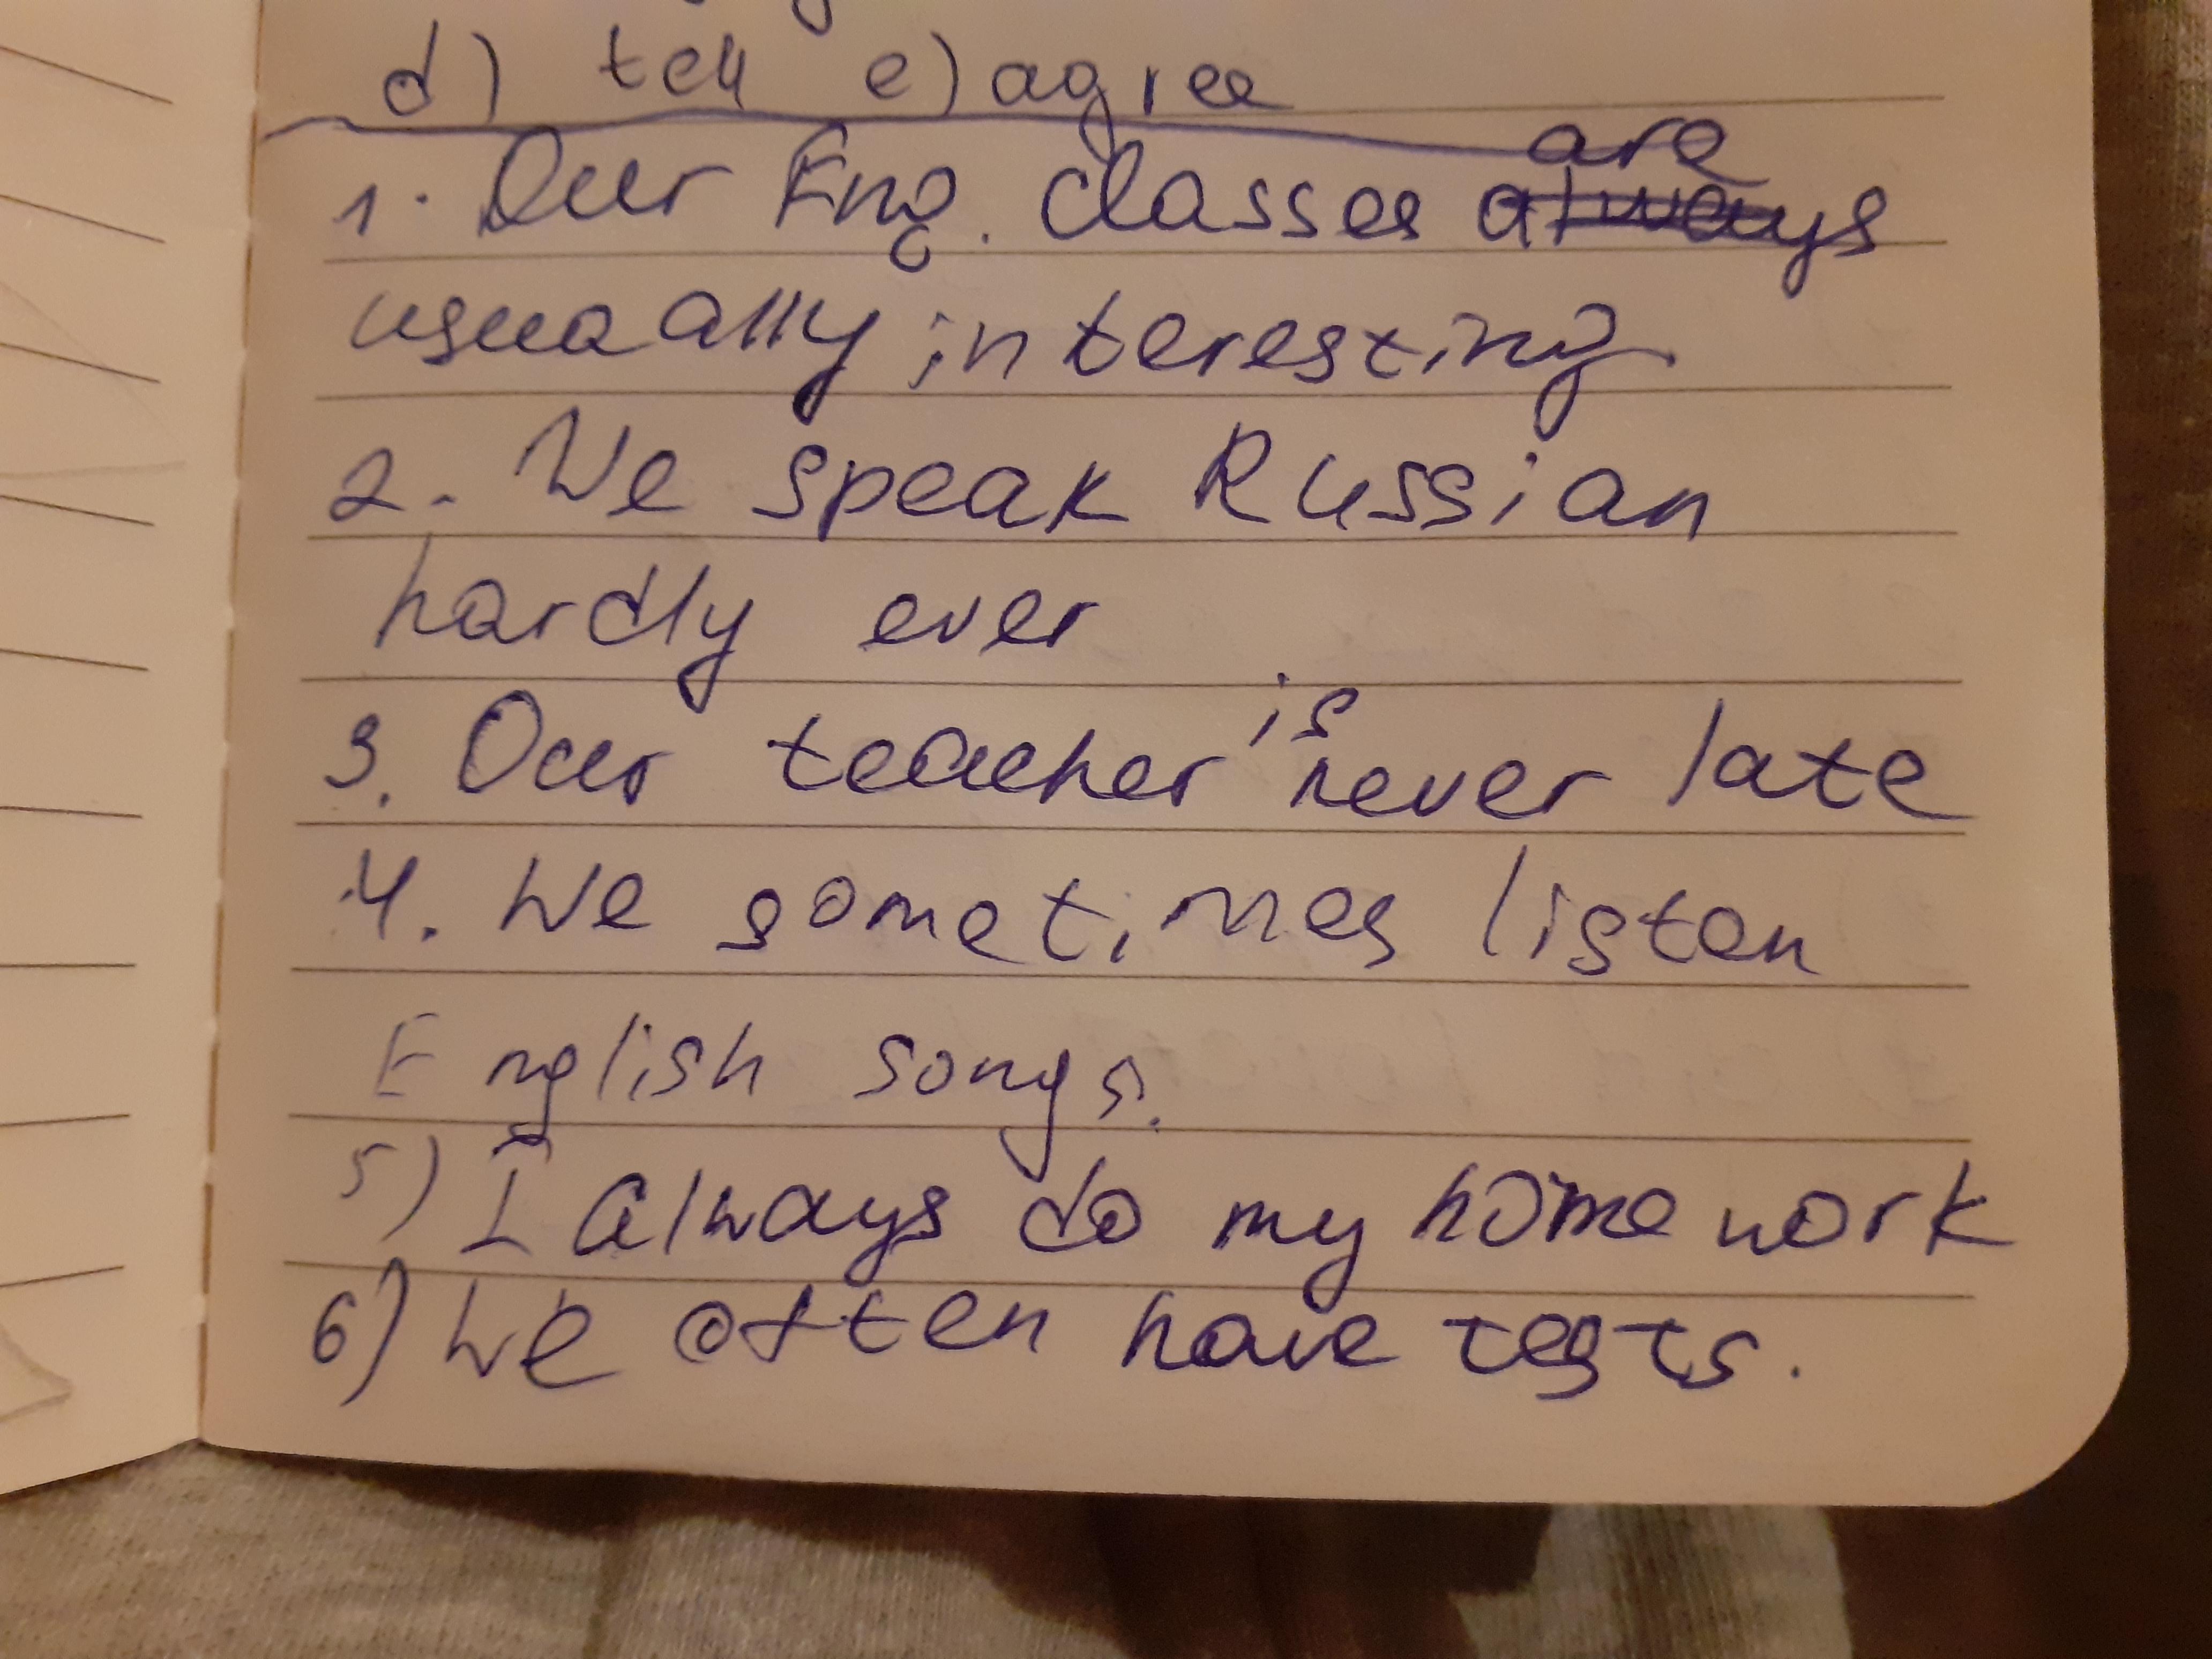 d) tell e) agree
are
1. Our Eng. classes always
usuaally interesting
2. We speak Russian
hardly ever
is
3. Our teacher never late
4. We sometimes listen
English songs.
5) I always do my homework
6) We often have tests.